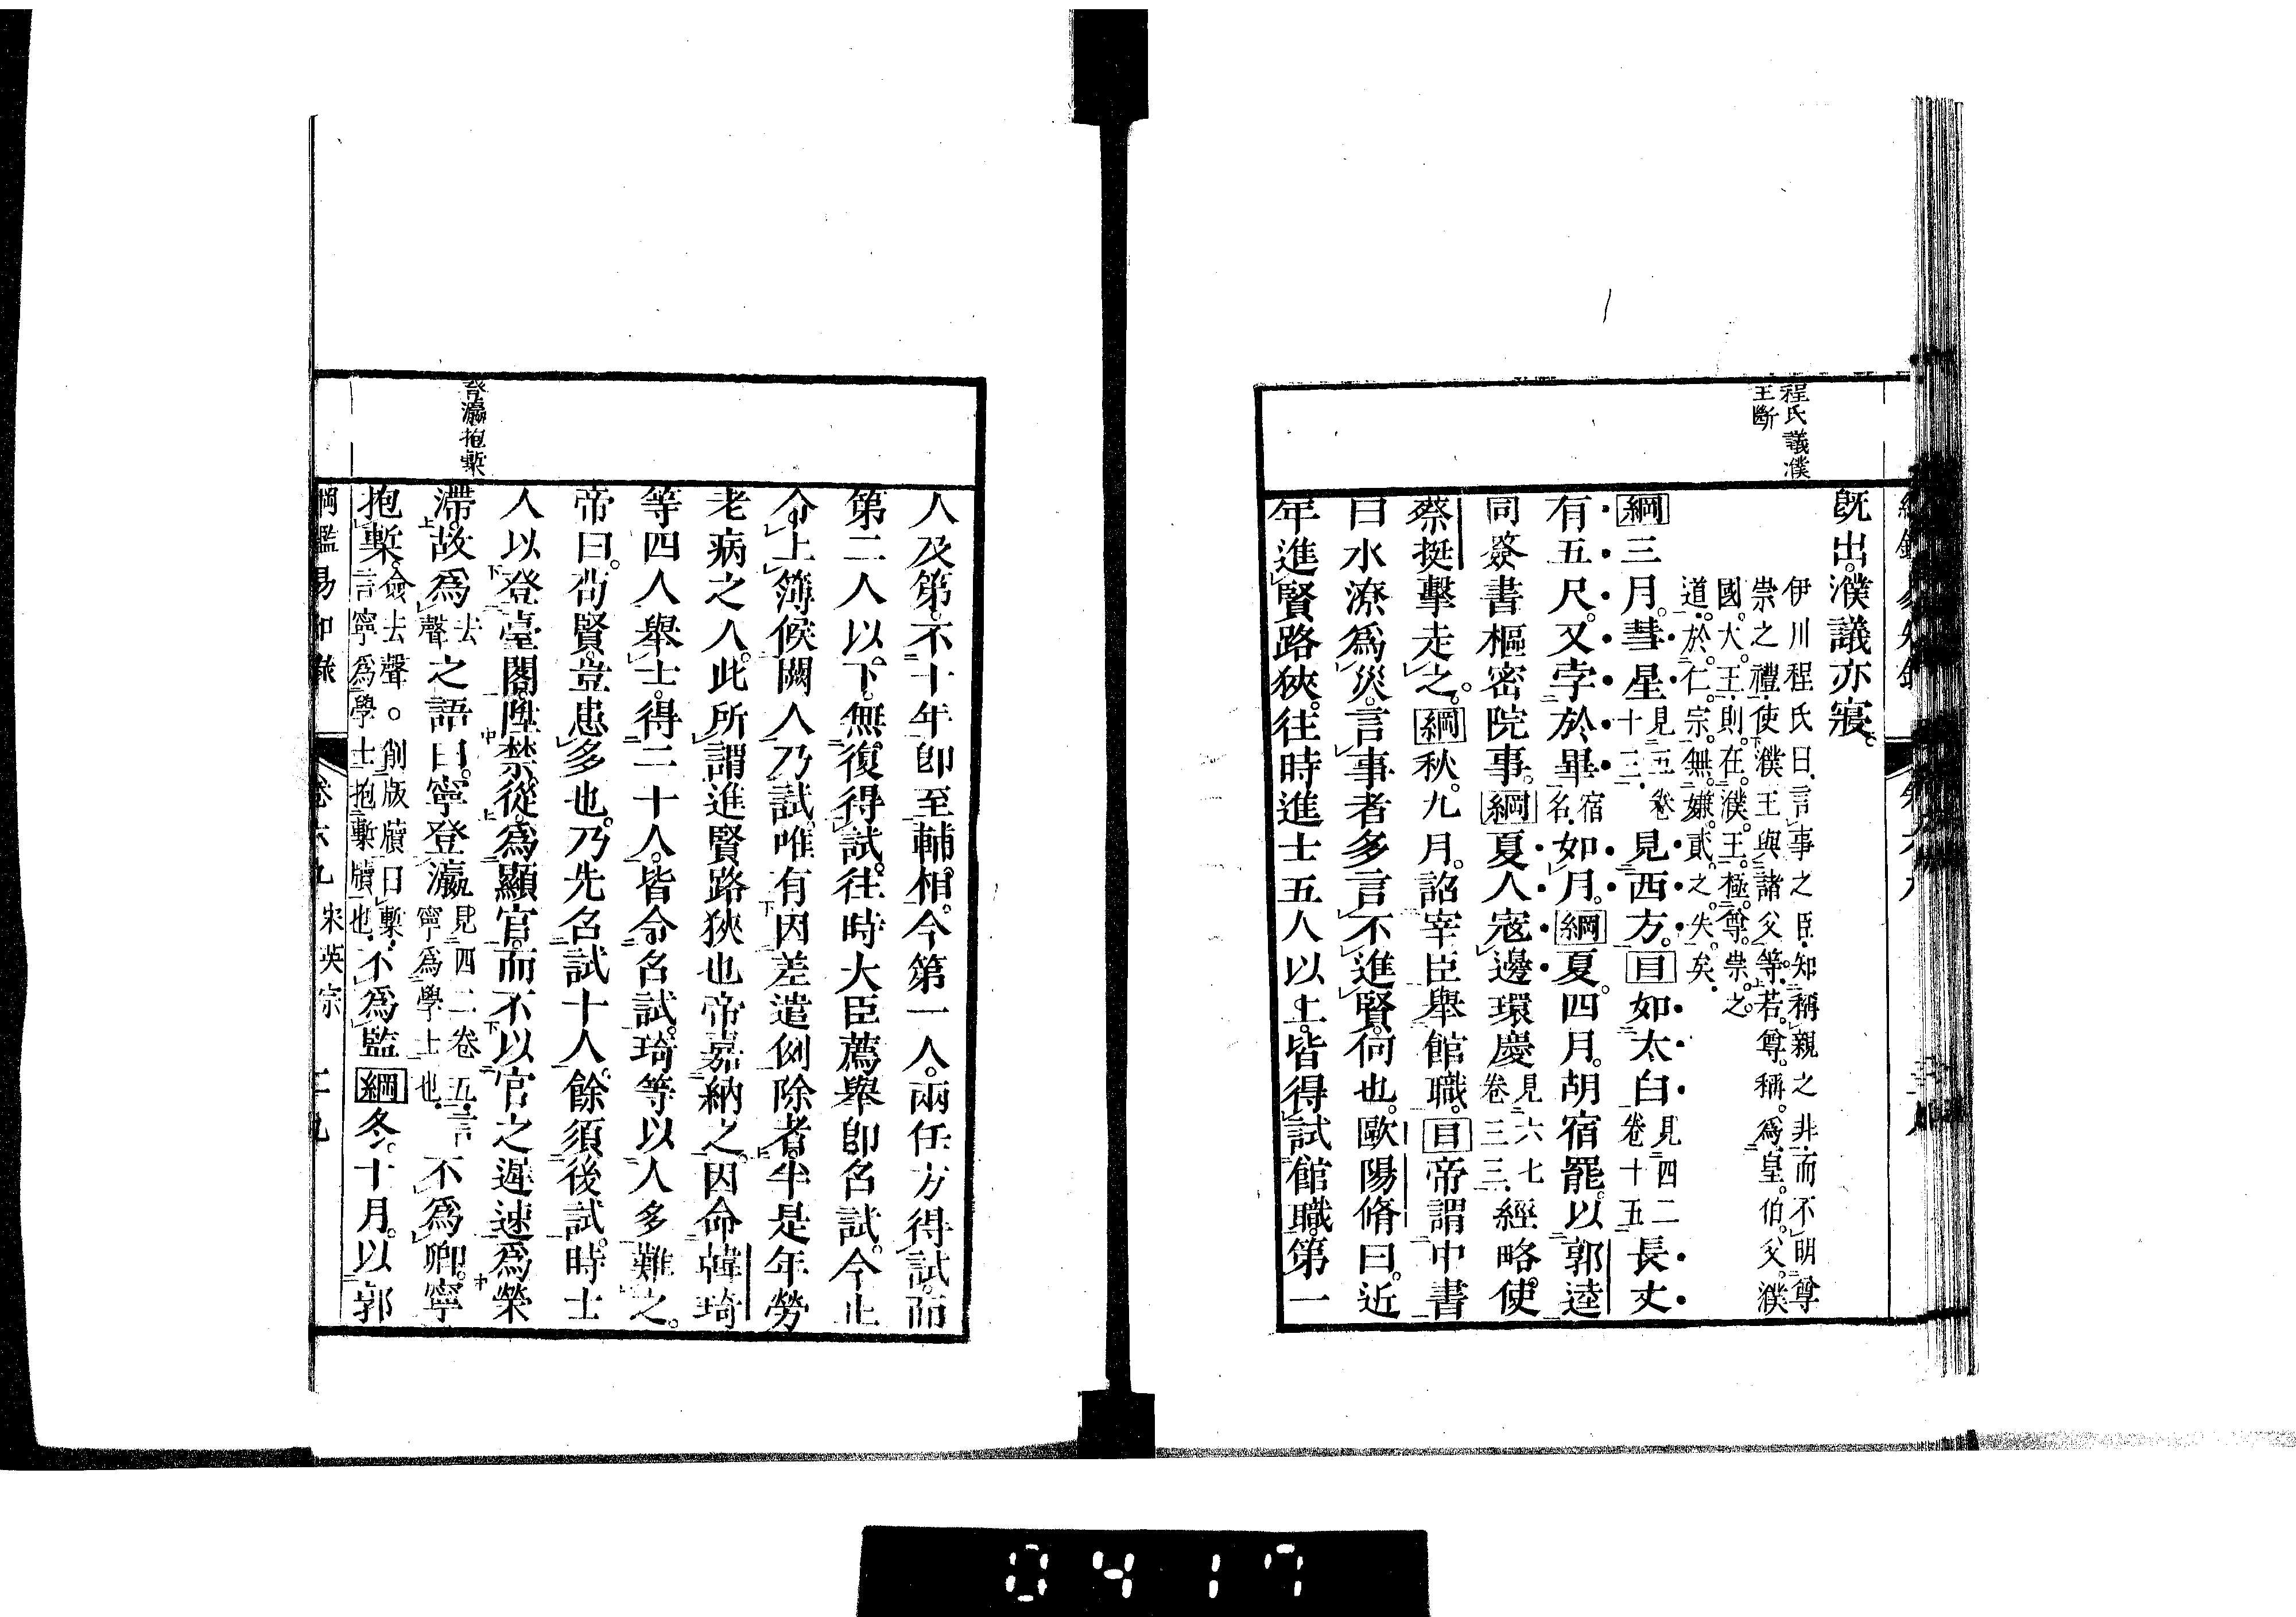 程氏議濮
王斷
既出。濮議亦寢。
伊川程氏曰、言事之臣、知稱親之非、而不明尊
崇之禮、使濮王與諸父等、若尊稱爲皇伯父濮
國大王、則在濮王極尊崇之
道、於仁宗無嫌貳之失矣、
綱三月。彗星見五卷十三、見西方。目如太白見四二卷十五長丈
有五尺。又孛於畢宿名、如月。綱夏。四月。胡宿罷。以郭逵
同簽書樞密院事。綱夏人寇邊環慶見六七卷三三、經略使
蔡挺擊走之。綱秋。九月。詔宰臣舉館職。目帝謂中書
曰水潦爲災。言事者多言不進賢。何也。歐陽脩曰。近
年進賢路狹。往時進士五人以上。皆得試館職。第一
人及第。不十年卽至輔相。今第一人。兩任方得試。而
第二人以下。無復得試。往時大臣薦舉卽召試。今止
令上簿候闕人乃試。唯有因差遣例除者。半是年勞
老病之人。此所謂進賢路狹也帝嘉納之。因命韓琦
等四人舉士。得二十人。皆令召試。琦等以人多難之。
帝曰。苟賢。豈患多也。乃先召試十人。餘須後試。時士
人以登臺閣。陞禁從。爲顯官。而不以官之遲速爲榮
登瀛抱槧
滯。故爲去聲之語曰。寧登瀛見四二卷五、言寧爲學士也、不爲卿。寧
抱槧僉去聲。○削版牘曰槧、言寧爲學士抱槧牘也、不爲監綱冬。十月。以郭
綱鑑易知錄 卷六九 宋英宗 二九
0417